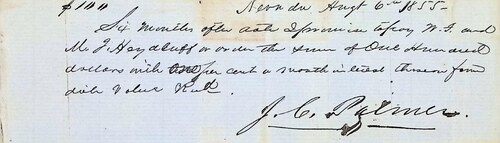 $100 Nevada Augt 6th 1855
Six months after date I promise to pay W. G. and
M. J. Haydluff or order the sum of One Hundred
dollars with one per cent a month interest thereon from
date Value Recd
J. C. Palmer